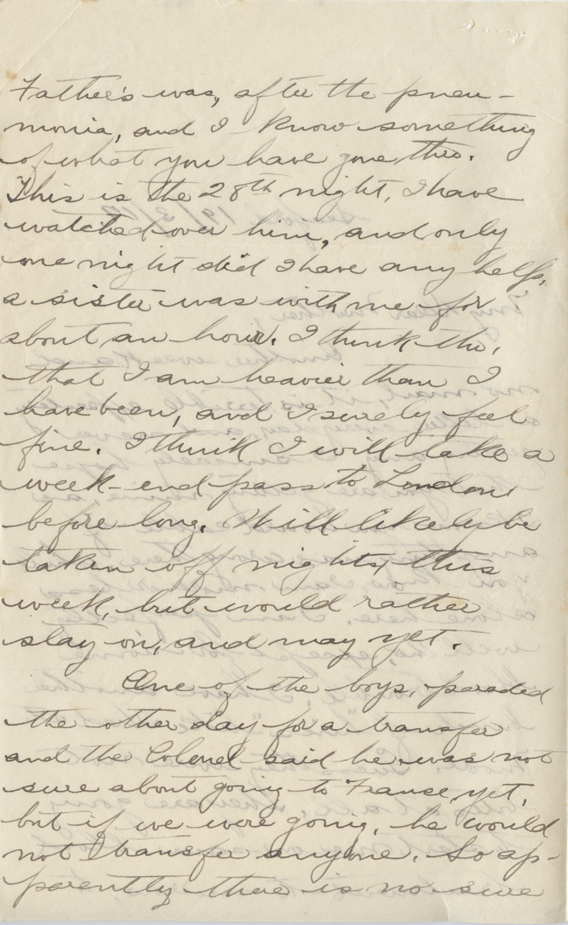 Father's was, after the pneu-
monia, and I know something
of what you have gone thro.
This is the 28th night, I have
watched over him, and only
one night did I have any help,
a sister was with me for
about an hour. I think tho,
that I am heavier than I
have been, and I surely feel
fine. I think I will take a
week-end pass to London
before long. Will likely be
taken off nights, this
week, but would rather
stay on, and may yet.
One of the boys, paraded
the other day for a transfer
and the Colonel said he was not
sure about going to France, yet,
but if we were going, he would
not transfer anyone. So ap-
parently there is no sure